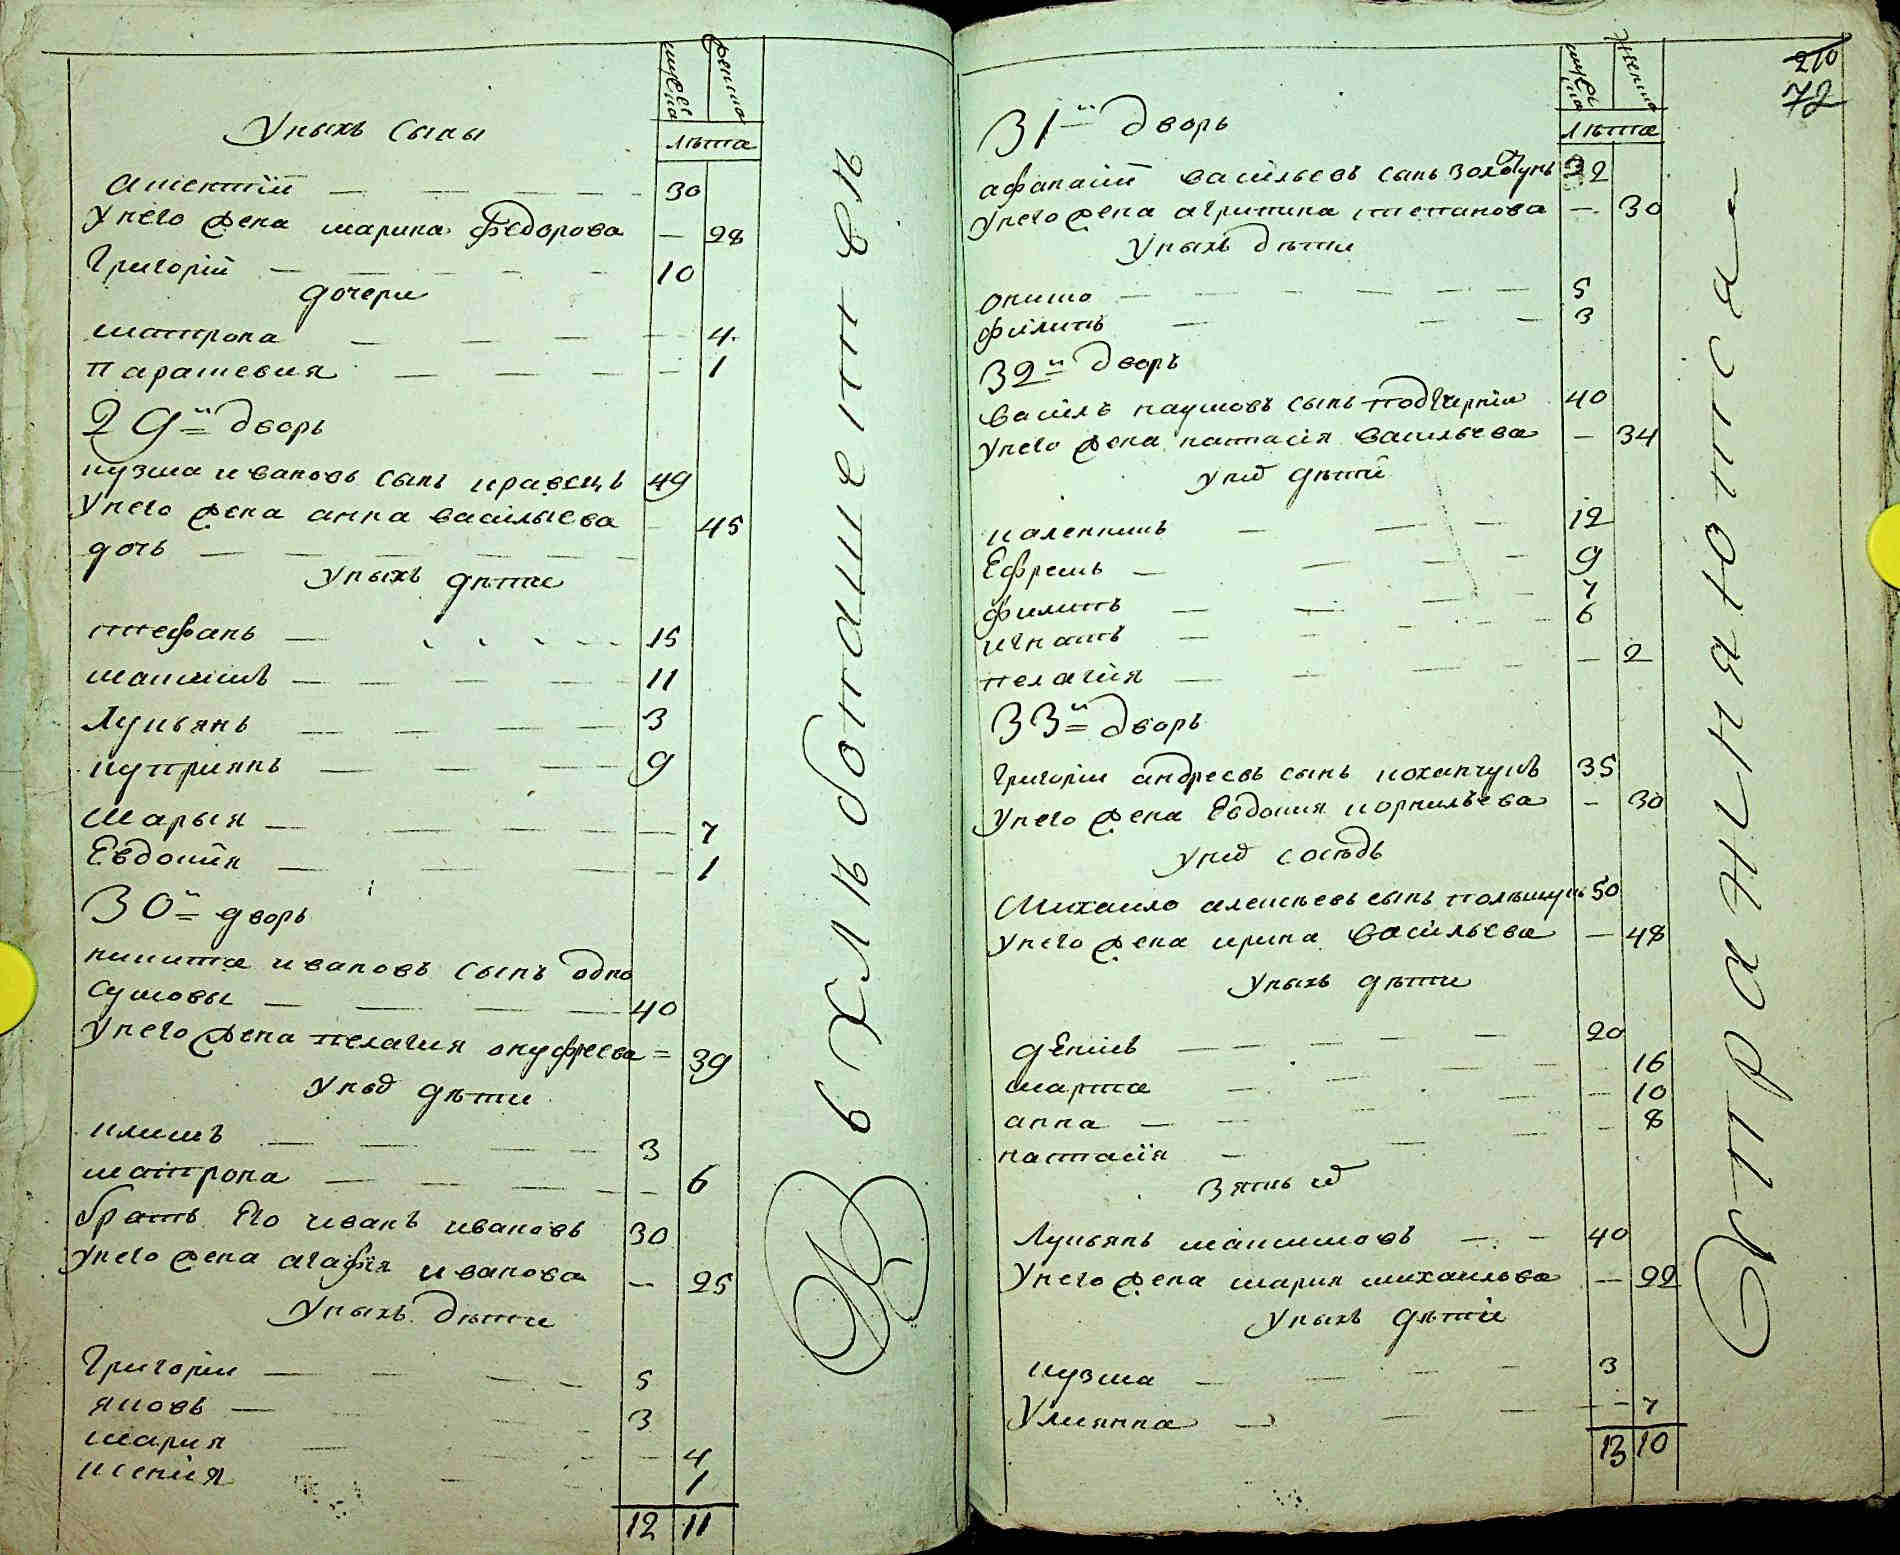 мужеска
женска
лѣта
У нихъ сыны
Алексѣй — — — — 30
У него жена Марина Федорова — 28
Григорій — — — 10
дочери
Матрона — — — — 4
Парасковия — — — 1
29й дворъ
Кузма Ивановъ сынъ Кравецъ 49
У него жена Анна Василиева 45
дочь — — — —
У нихъ дѣти
Стефанъ — 15
Максимъ — — — — 11
Лукьянъ — — — — 3
Куприянъ — — — 9
Марыя — — — — 7
Евдокия — — — 1
30й дворъ
Никита Ивановъ сынъ одно
сумовы — — — 40
У него жена Пелагия Онуфреева = 39
У нѣо дѣти
Климъ — — — 3
Матрона — — — 6
братъ его Иванъ Ивановъ 30
У него жена Агафия Иванова — 25
У нихъ дѣти
Григории — — — 5
Яковъ — — 3
Мария — — 4
Ксения — 1
12 11
В хлѣбопашестве
210
72
мужеска
женска
лѣта
31й дворъ
Афанасий Васильевъ сынъ Золотунъ 32
У него жена Агрипина Степанова — 30
У нихъ дѣти
Ониско — — — — 5
Филипъ — — — 3
32й дворъ
Василь Наумовъ сынъ 40
У него жена Настасия Васильева — 34
У нѣо дѣти
Каленикъ — — — 12
Ефремъ — — — 9
Филипъ — — — 7
Игнатъ — — — 6
Пелагия — — — 2
33й дворъ
Григории Андреевъ сынъ Коханчукъ 35
У него жена Евдокия Корнильева — 30
У нѣо сосѣдъ
Михаило Алексѣевъ сынъ 50
У него жена Ирина Васильева — 48
У нихъ дѣти
Денисъ — — — 20
Марта — — — 16
Анна — — — 10
Настасия — — — 8
Зять ео
Лукьянъ Максимовъ — — 40
У него жена Мария Михаилова — 22
У нихъ дѣти
Кузма — — — 3
Улиянна — — — 7
13 10
упражняются